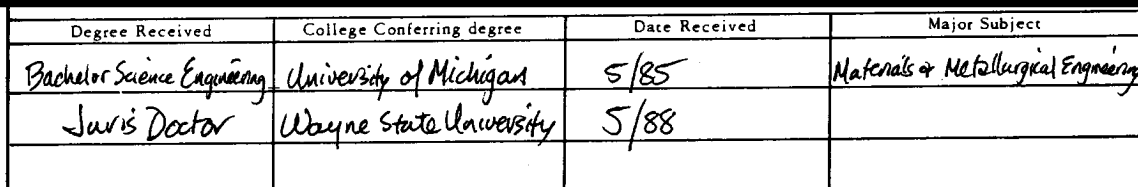 Degree Received College Conferring degree Date Received Major Subject
Bachelor Science Engineering University of Michigan 5/85 Materials & Metallurgical Engineering
Juris Doctor Wayne State University 5/88